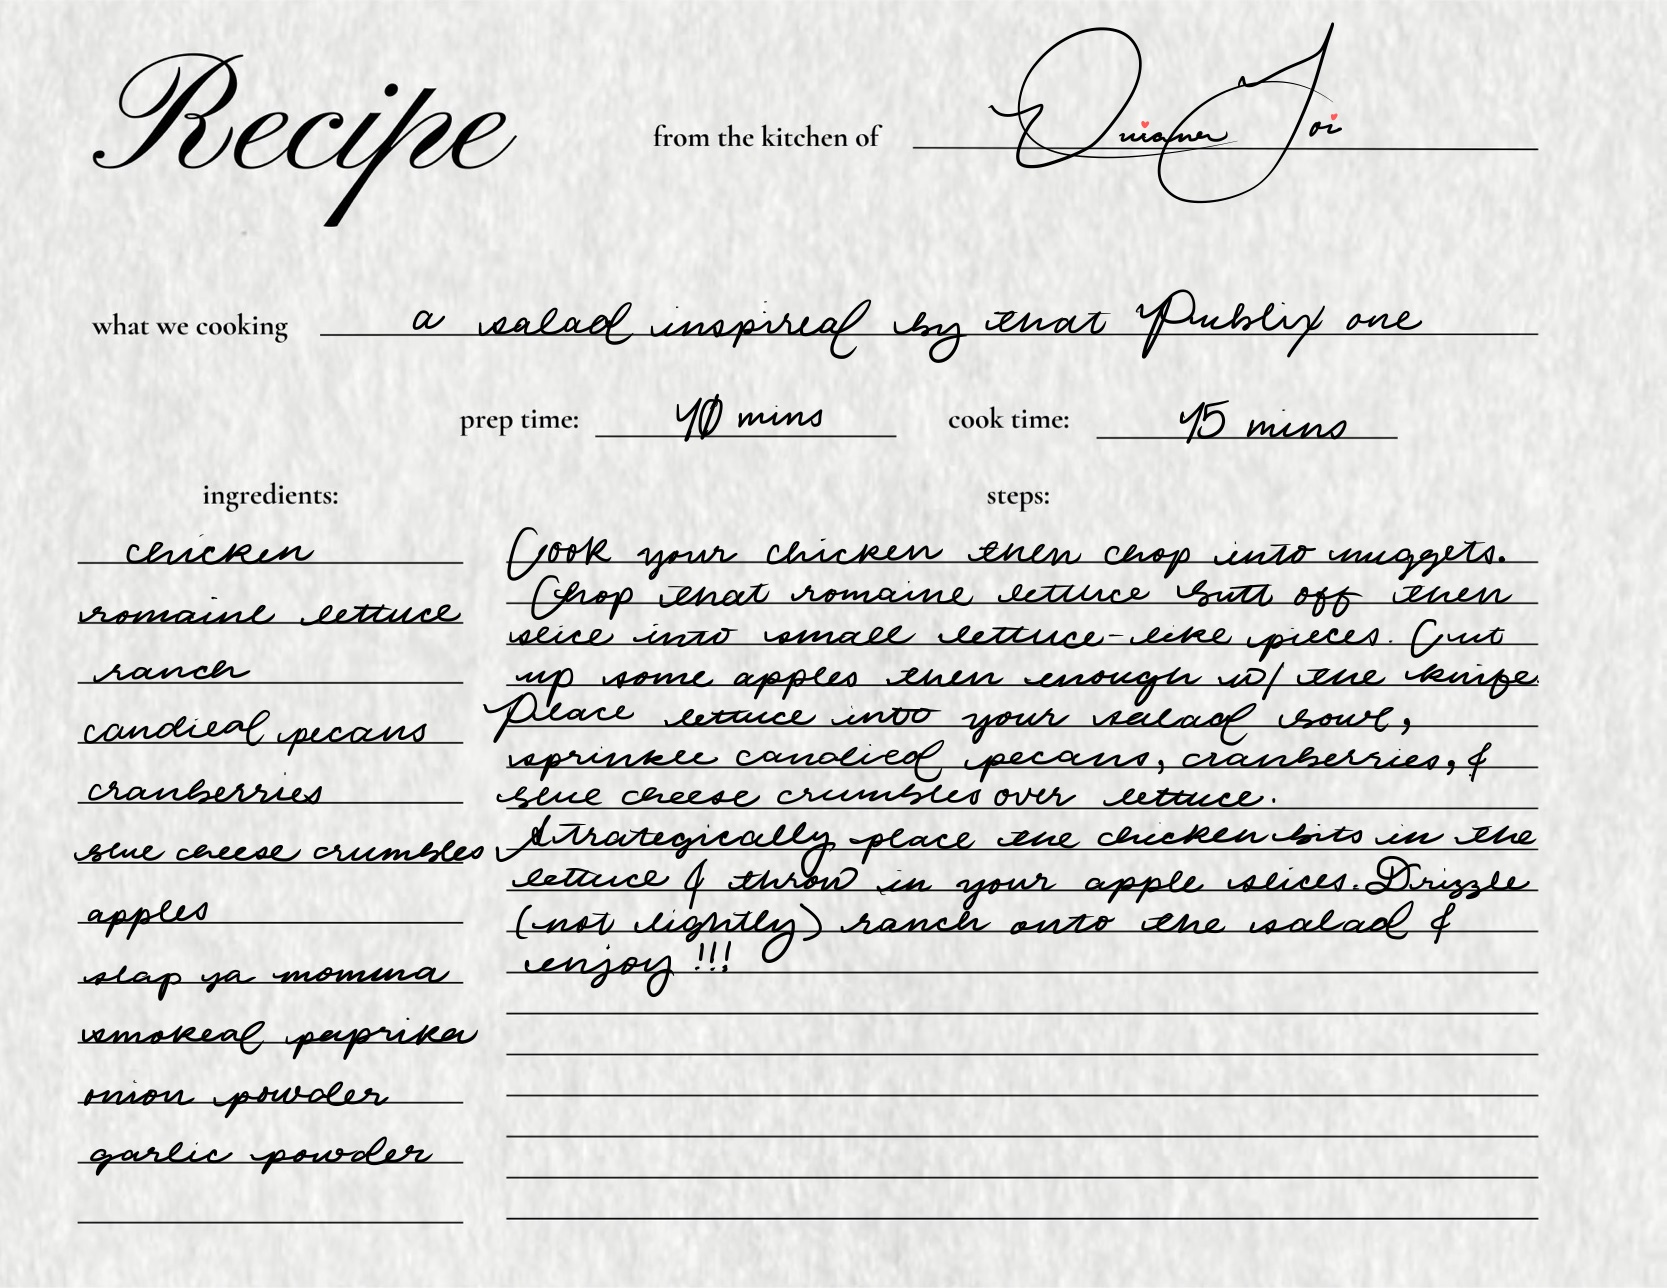 Recipe
from the kitchen of Joi
what we cooking a salad inspired by that Publix one
prep time: 10 mins cook time: 15 mins
ingredients:
chicken
romaine lettuce
ranch
candied pecans
cranberries
blue cheese crumbles
apples
slap ya momma
smoked paprika
onion powder
garlic powder
steps:
Cook your chicken then chop into nuggets.
Chop that romaine lettuce butt off then
slice into small lettuce-like pieces. Cut
up some apples then enough w/ the knife.
Place lettuce into your salad bowl,
sprinkle candied pecans, cranberries, &
blue cheese crumbles over lettuce.
Strategically place the chicken bits in the
lettuce & throw in your apple slices. Drizzle
(not lightly) ranch onto the salad &
enjoy !!!